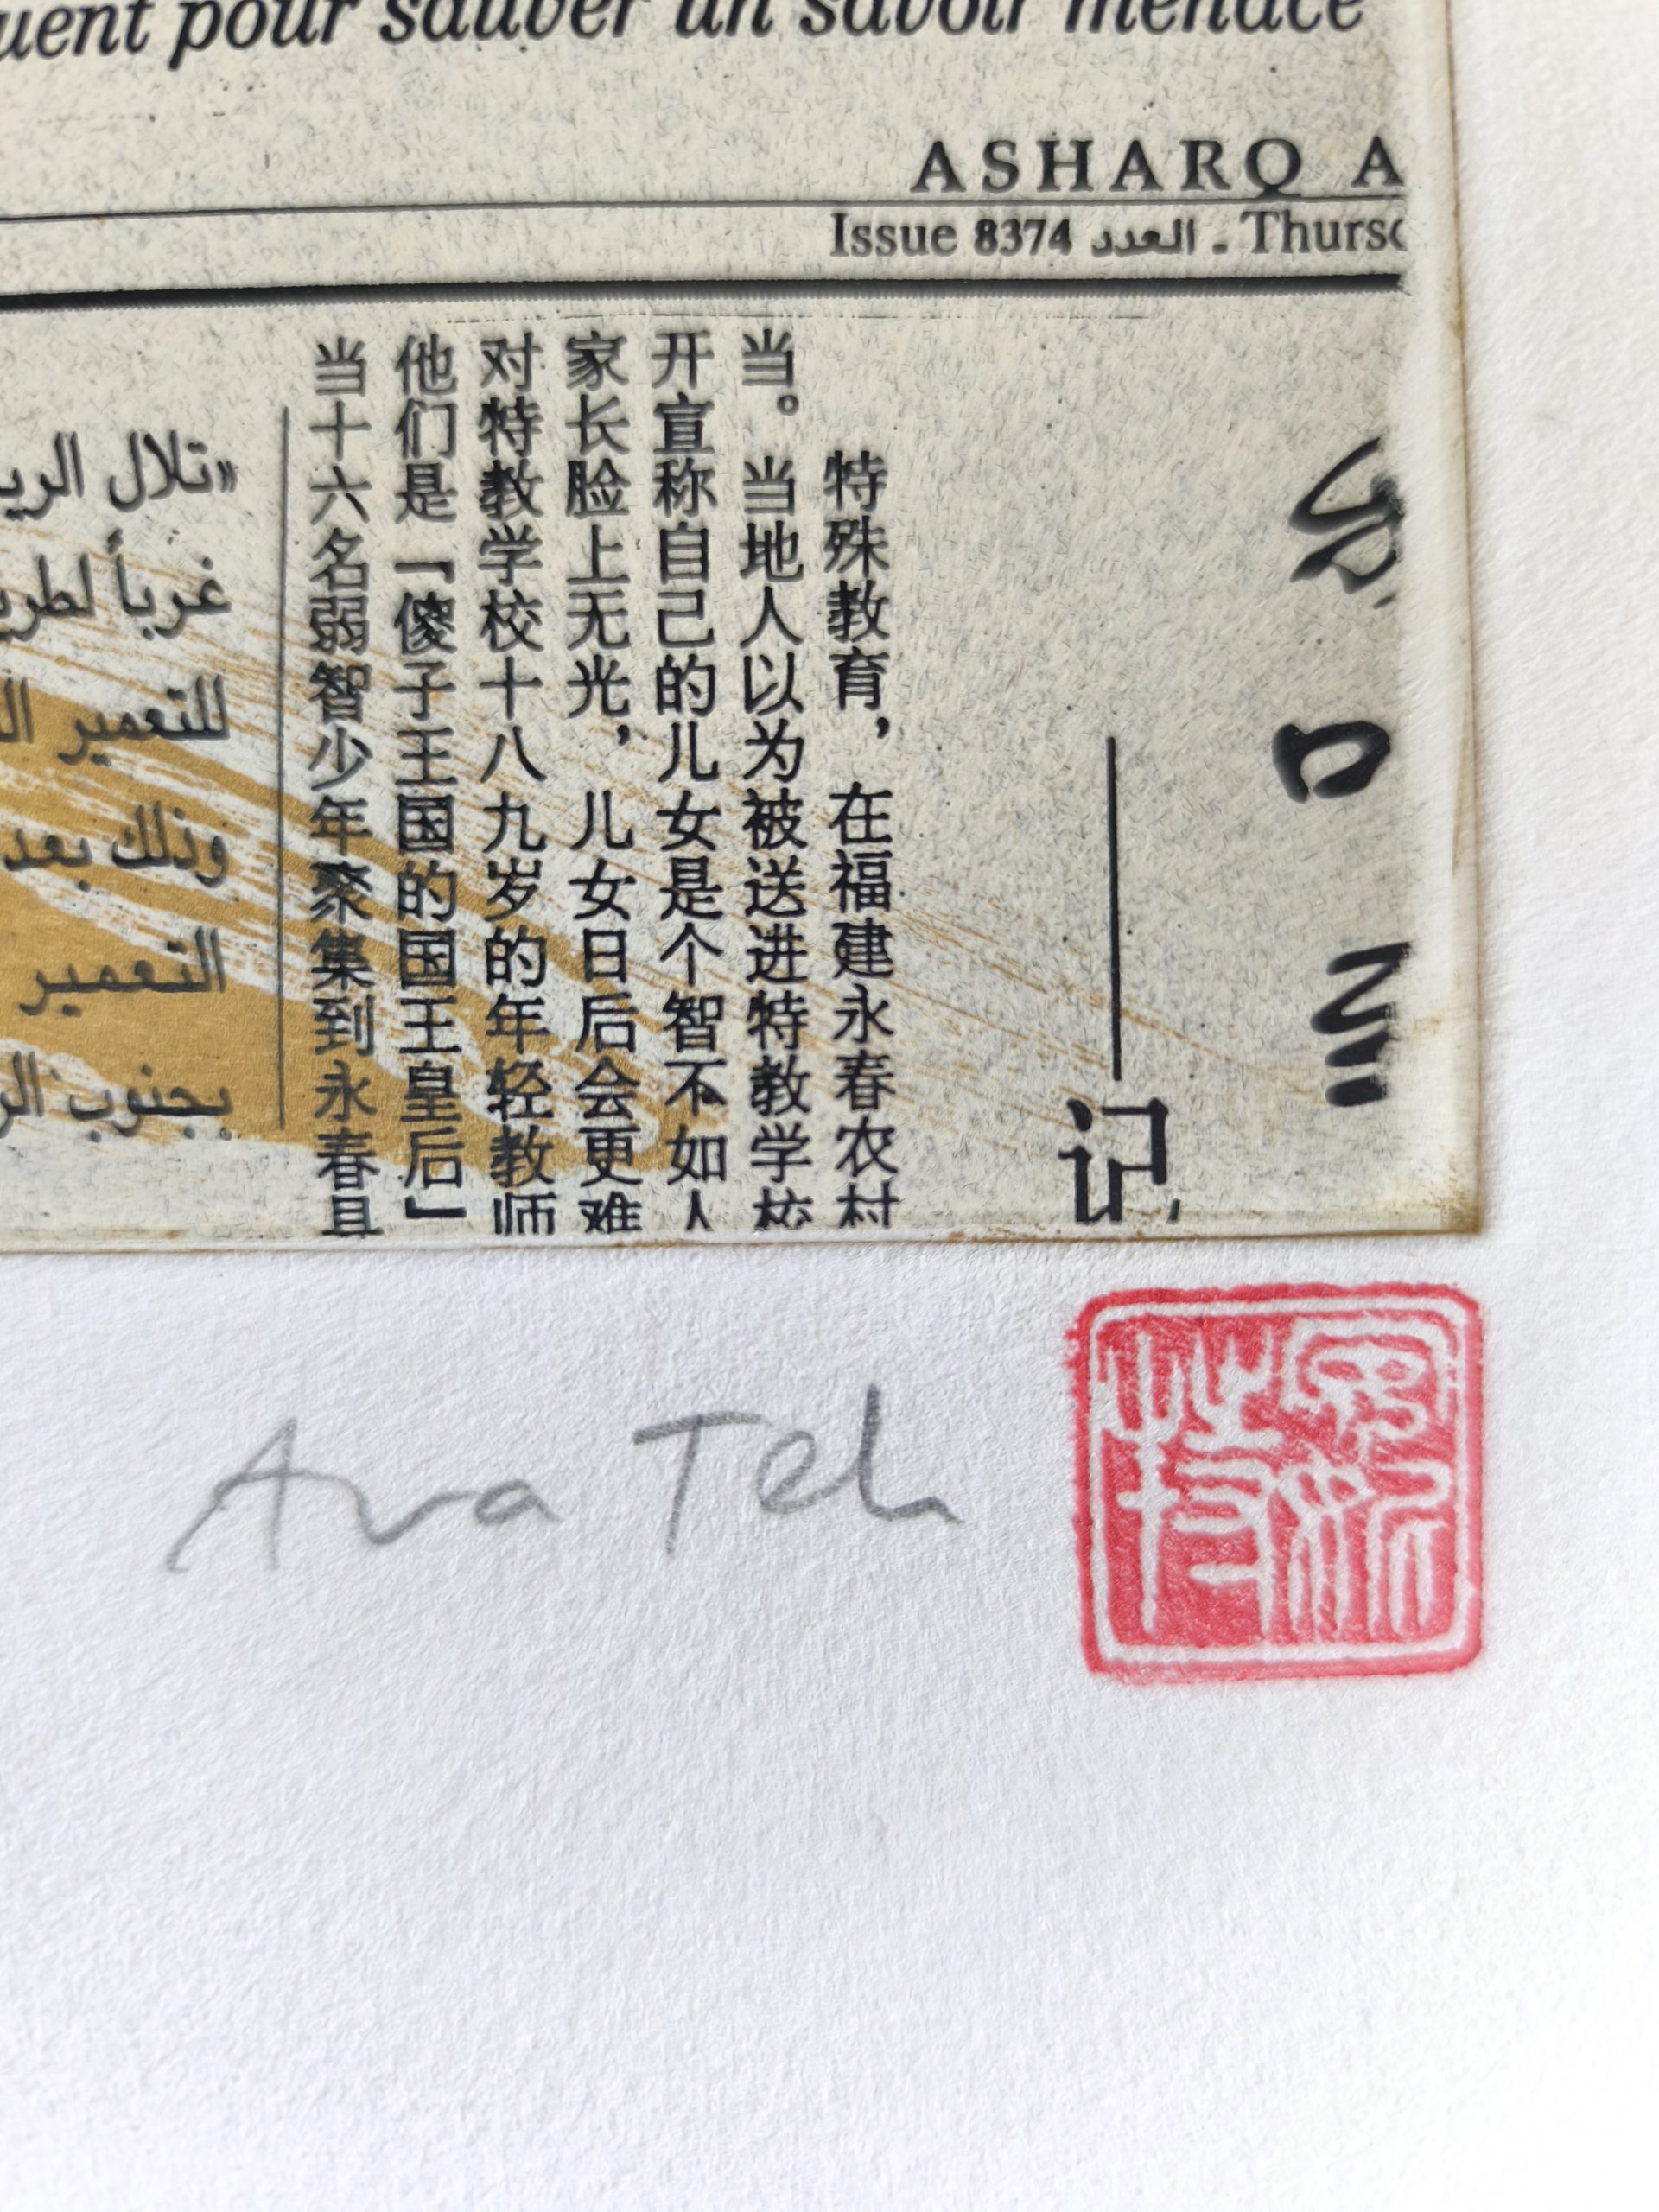 uent pour sauver un savoir menacé
ASHARQ A
Issue 8374 العدد - Thurs
记
特殊教育，在福建永春农村
当。当地人以为被送进特教学校
开宣称自己的儿女是个智不如人
家长脸上无光，儿女日后会更难
对特教学校十八九岁的年轻教师
他们是「傻子王国的国王皇后」
当十六名弱智少年聚集到永春县
«تلال الري
غرباً لطري
للتعمير ال
وذلك بعد
التعمير
بجنوب الو
Ava Teh